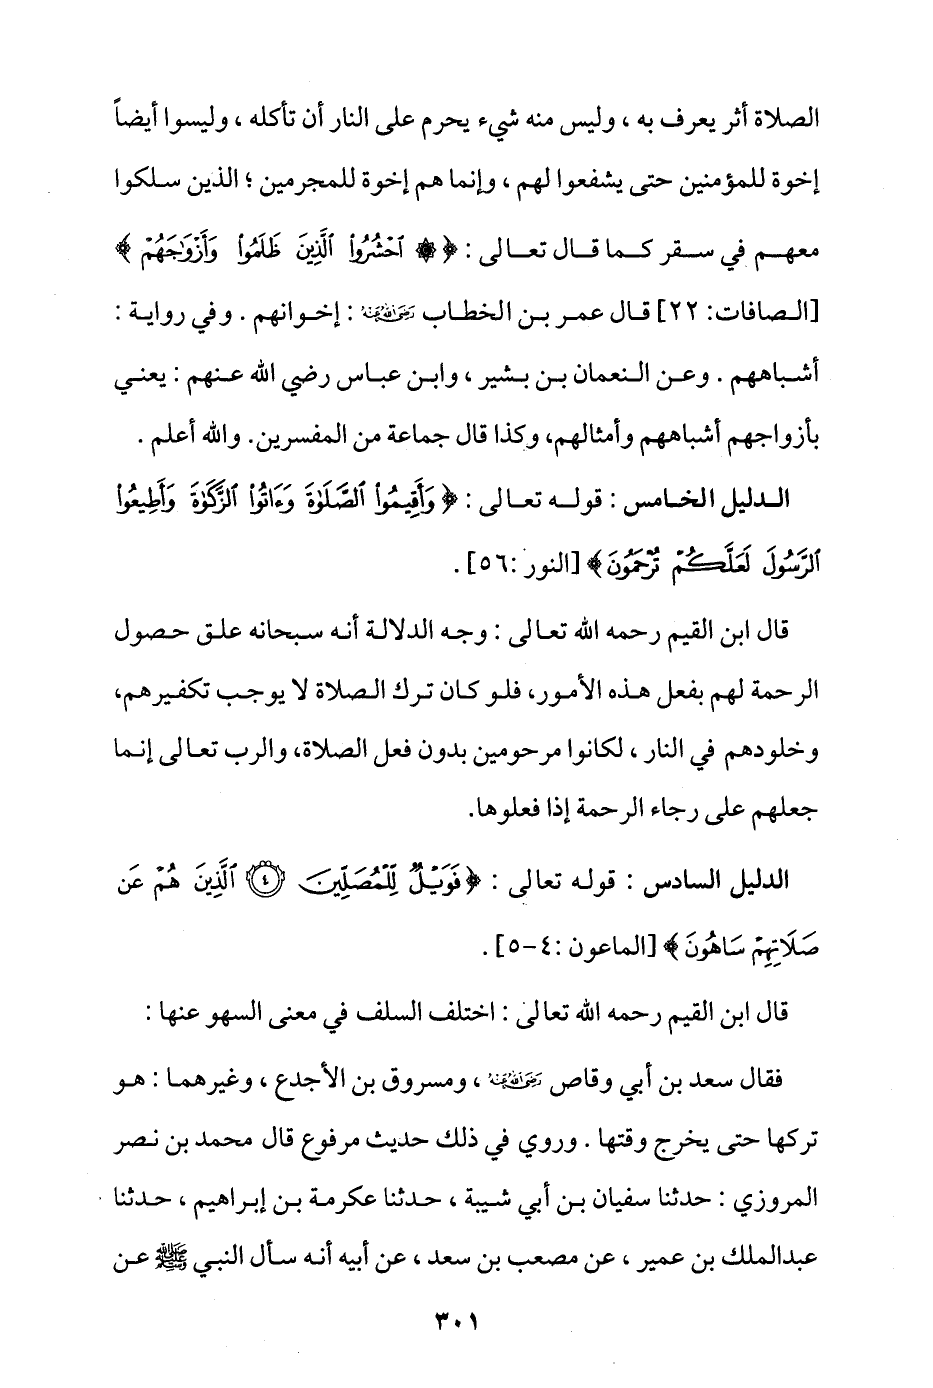 الصلاة أثر يعرف به ، وليس منه شيء يحرم على النار أن تأكله ، وليسوا أيضاً
إخوة للمؤمنين حتى يشفعوا لهم ، وإنما هم إخوة للمجرمين ؛ الذين سلكوا
معهم في سقر كما قال تعالى : ﴿ ۞ ٱحۡشُرُواْ ٱلَّذِينَ ظَلَمُواْ وَأَزۡوَٰجَهُمۡ ﴾
[الصافات: ٢٢] قال عمر بن الخطاب رضي الله عنه : إخوانهم . وفي رواية :
أشباههم . وعن النعمان بن بشير ، وابن عباس رضي الله عنهم : يعني
بأزواجهم أشباههم وأمثالهم، وكذا قال جماعة من المفسرين. والله أعلم .
الدليل الخامس : قوله تعالى : ﴿ وَأَقِيمُواْ ٱلصَّلَوٰةَ وَءَاتُواْ ٱلزَّكَوٰةَ وَأَطِيعُواْ
ٱلرَّسُولَ لَعَلَّكُمۡ تُرۡحَمُونَ ﴾ [النور :٥٦] .
قال ابن القيم رحمه الله تعالى : وجه الدلالة أنه سبحانه علق حصول
الرحمة لهم بفعل هذه الأمور، فلو كان ترك الصلاة لا يوجب تكفيرهم،
وخلودهم في النار ، لكانوا مرحومين بدون فعل الصلاة، والرب تعالى إنما
جعلهم على رجاء الرحمة إذا فعلوها.
الدليل السادس : قوله تعالى : ﴿ فَوَيۡلٞ لِّلۡمُصَلِّينَ ٤ ٱلَّذِينَ هُمۡ عَن
صَلَاتِهِمۡ سَاهُونَ ﴾ [الماعون :٤-٥] .
قال ابن القيم رحمه الله تعالى : اختلف السلف في معنى السهو عنها :
فقال سعد بن أبي وقاص رضي الله عنه ، ومسروق بن الأجدع ، وغيرهما : هو
تركها حتى يخرج وقتها . وروي في ذلك حديث مرفوع قال محمد بن نصر
المروزي : حدثنا سفيان بن أبي شيبة ، حدثنا عكرمة بن إبراهيم ، حدثنا
عبدالملك بن عمير ، عن مصعب بن سعد ، عن أبيه أنه سأل النبي ﷺ عن
٣٠١